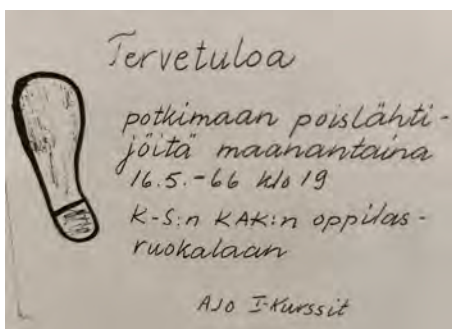 Tervetuloa
potkimaan poislähti-
jöitä maanantaina
16.5.-66 klo 19
K-S:n KAK:n oppilas-
ruokalaan
AJO I-Kurssit